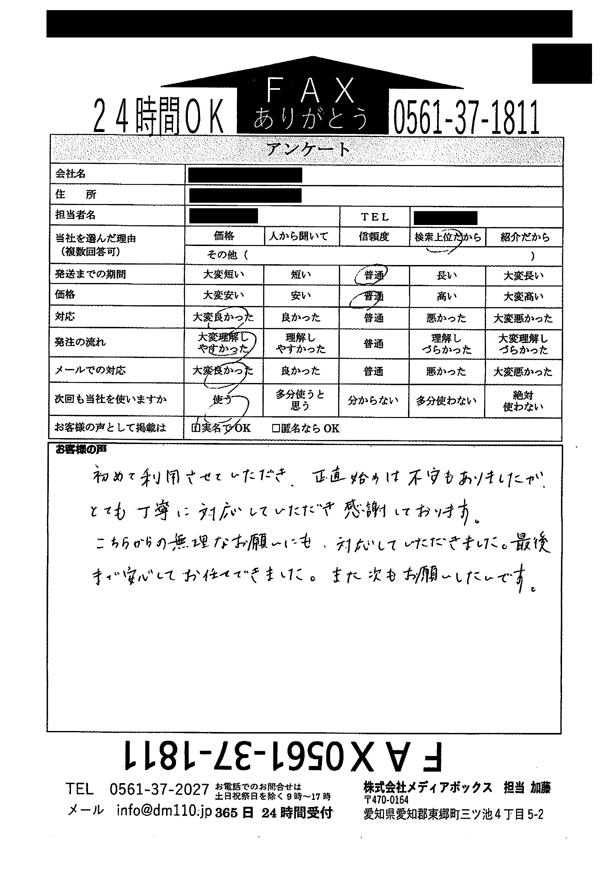 FAX
ありがとう
24時間OK 0561-37-1811
アンケート
会社名
住 所
担当者名 TEL
当社を選んだ理由 (複数回答可) 価格 人から聞いて 信頼度 検索上位だから 紹介だから
その他 ( )
発送までの期間 大変短い 短い 普通 長い 大変長い
価格 大変安い 安い 普通 高い 大変高い
対応 大変良かった 良かった 普通 悪かった 大変悪かった
発注の流れ 大変理解しやすかった 理解しやすかった 普通 理解しづらかった 大変理解しづらかった
メールでの対応 大変良かった 良かった 普通 悪かった 大変悪かった
次回も当社を使いますか 使う 多分使うと思う 分からない 多分使わない 絶対使わない
お客様の声として掲載は □実名でOK □匿名ならOK
お客様の声
初めて利用させていただき、正直始めは不安もありましたが、
とても丁寧に対応していただき感謝しております。
こちらからの無理なお願いにも、対応していただきました。最後
まで安心してお任せできました。また次もお願いしたいです。
FAX0561-37-1811
TEL 0561-37-2027 お電話でのお問合せは
土日祝祭日を除く9時~17時
メール info@dm110.jp 365日24時間受付
株式会社メディアボックス 担当 加藤
〒470-0164
愛知県愛知郡東郷町三ツ池4丁目5-2